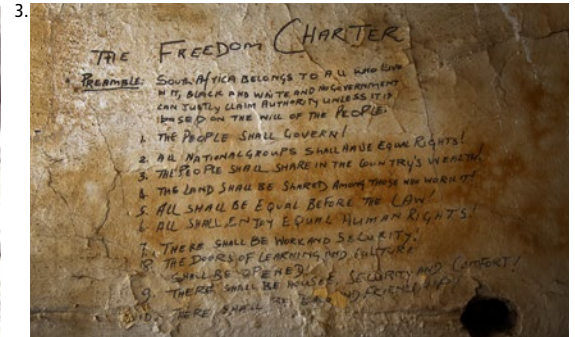 3.
THE FREEDOM CHARTER
PREAMBLE: SOUTH AFRICA BELONGS TO ALL WHO LIVE
IN IT, BLACK AND WHITE AND NO GOVERNMENT
CAN JUSTLY CLAIM AUTHORITY UNLESS IT IS
BASED ON THE WILL OF THE PEOPLE.
1. THE PEOPLE SHALL GOVERN!
2. ALL NATIONAL GROUPS SHALL HAVE EQUAL RIGHTS!
3. THE PEOPLE SHALL SHARE IN THE COUNTRY'S WEALTH!
4. THE LAND SHALL BE SHARED AMONG THOSE WHO WORK IT!
5. ALL SHALL BE EQUAL BEFORE THE LAW
6. ALL SHALL ENJOY EQUAL HUMAN RIGHTS!
7. THERE SHALL BE WORK AND SECURITY!
8. THE DOORS OF LEARNING AND CULTURE
SHALL BE OPENED!
9. THERE SHALL BE HOUSES, SECURITY AND COMFORT!
10. THERE SHALL BE AND FRIENDSHIP